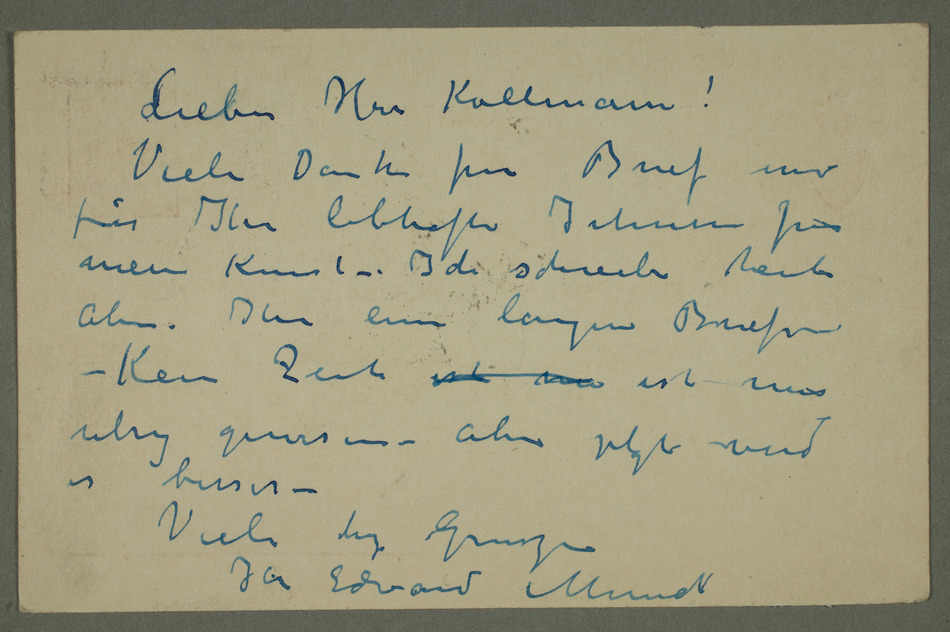 Lieber Herr Kollmann!
Viele Danke für Brief und
für Ihr lebhafte Interesse für
meine Kunst-. Ich schreibe heute
Ihr ein langen Brief
- Kein Zeit ist mir
übrig gewesen - aber jetzt wird
es besser -
Viele hzg Grusze
Ihr Edvard Munch